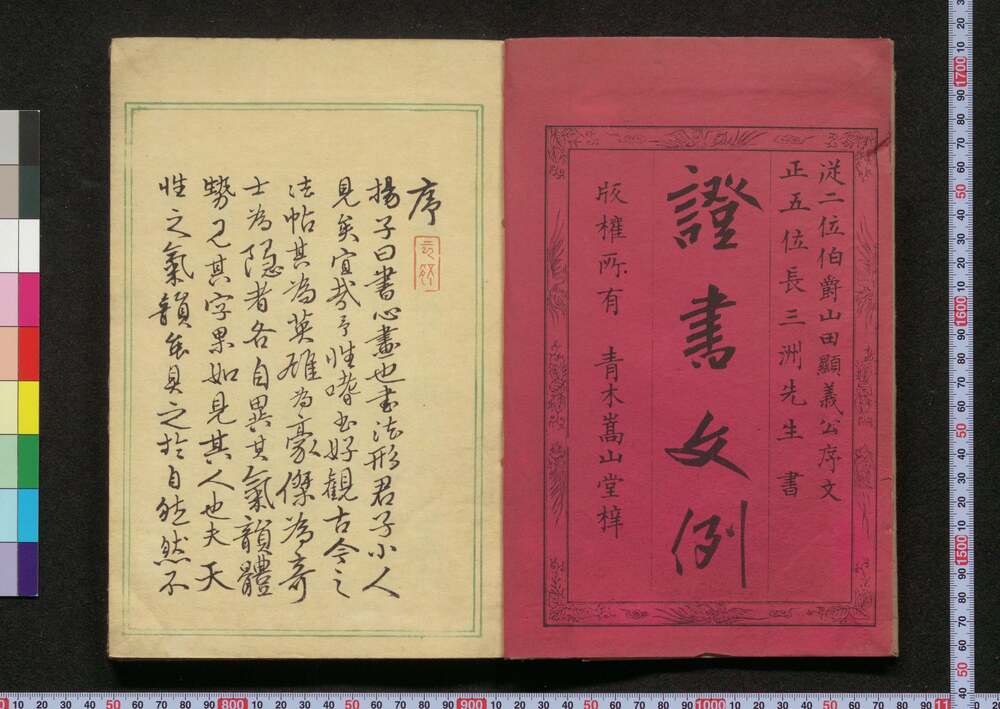 従二位伯爵山田顯義公序文
正五位長三洲先生 書
證書文例
版權所有 青木嵩山堂梓
序
揚子曰書心畫也書法形君子小人
見矣宜哉予性嗜書好觀古今之
法帖其為英雄為豪傑為奇
士為隠者各自異其氣韻體
勢見其字果如見其人也夫天
性之氣韻具之於自然然不